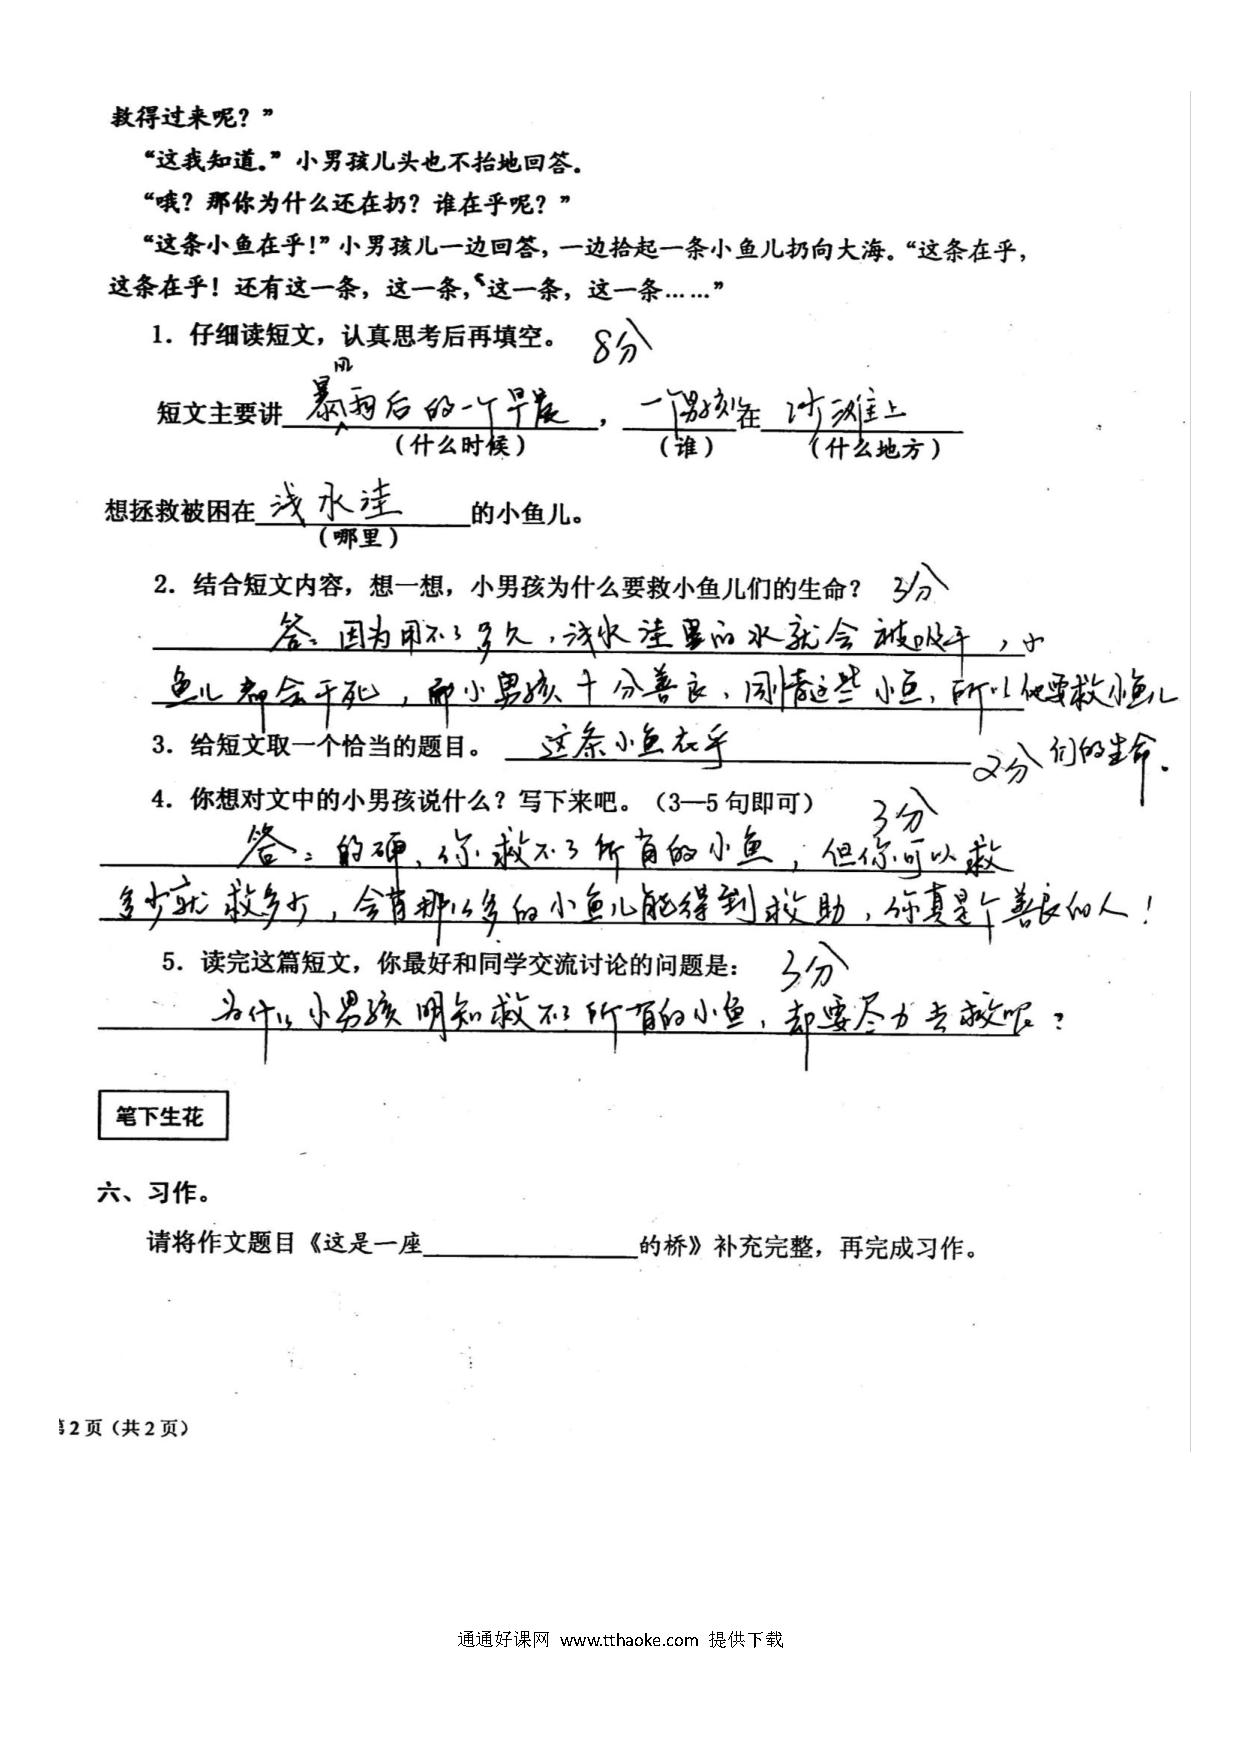 救得过来呢？”
“这我知道。”小男孩儿头也不抬地回答。
“哦？那你为什么还在扔？谁在乎呢？”
“这条小鱼在乎!”小男孩儿一边回答，一边拾起一条小鱼儿扔向大海。“这条在乎，
这条在乎！还有这一条，这一条，这一条，这一条……”
1．仔细读短文，认真思考后再填空。 8分
短文主要讲暴风雨后的一个早晨，一个男孩在沙滩上
(什么时候) (谁) (什么地方)
想拯救被困在浅水洼的小鱼儿。
(哪里)
2．结合短文内容，想一想，小男孩为什么要救小鱼儿们的生命？ 3分
答：因为用不了多久，浅水洼里的水就会被吸干，小
鱼儿都会干死，而小男孩十分善良、同情这些小鱼，所以他要救小鱼儿
3．给短文取一个恰当的题目。 这条小鱼在乎 2分 们的生命。
4．你想对文中的小男孩说什么？写下来吧。（3—5句即可） 3分
答：的确，你救不了所有的小鱼，但你可以救
多少就救多少，会有那么多的小鱼儿能得到救助，你真是个善良的人！
5．读完这篇短文，你最好和同学交流讨论的问题是： 3分
为什么小男孩明知救不了所有的小鱼，却要尽力去救呢？
笔下生花
六、习作。
请将作文题目《这是一座________的桥》补充完整，再完成习作。
第2页（共2页）
通通好课网 www.tthaoke.com 提供下载